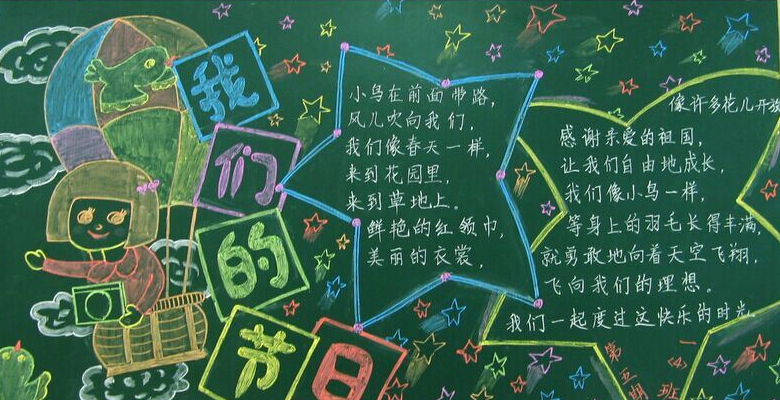 我们的节日
小鸟在前面带路，
风儿吹向我们，
我们像春天一样，
来到花园里，
来到草地上。
鲜艳的红领巾，
美丽的衣裳，
像许多花儿开放
感谢亲爱的祖国，
让我们自由地成长，
我们像小鸟一样，
等身上的羽毛长得丰满，
就勇敢地向着天空飞翔，
飞向我们的理想。
我们一起度过这快乐的时光
第五期
四〈1〉班